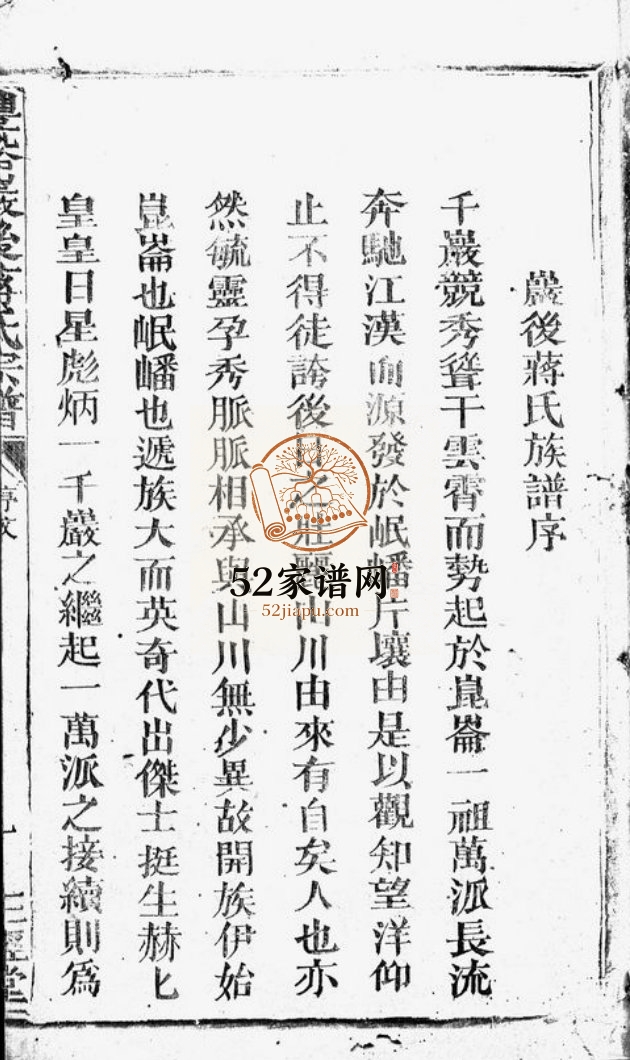 巖後蔣氏族譜序
千巖競秀聳干雲霄而勢起於崑崙一祖萬派長流
奔馳江漢而源發於岷嶓片壤由是以觀知望洋仰
止不得徒誇後日之壯麗山川由來有自矣人也亦
然毓靈孕秀脈脈相承與山川無少異故開族伊始
崑崙也岷嶓也遞族大而英奇代出傑士挺生赫匕
皇皇日星彪炳一千巖之繼起一萬派之接續則爲
巖後蔣氏宗譜
序文
一
三徑堂
52家谱网
52jiapu.com